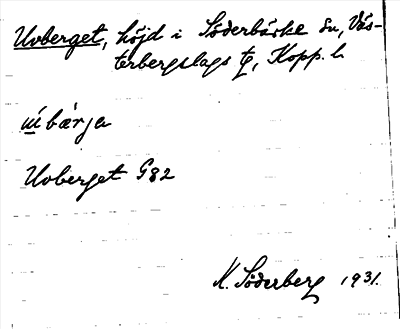 Uvberget, höjd i Söderbärke sn, Väs-
terbergslags tg, Kopp. l.
úbärja
Uvberget G82
K. Söderberg 1931.